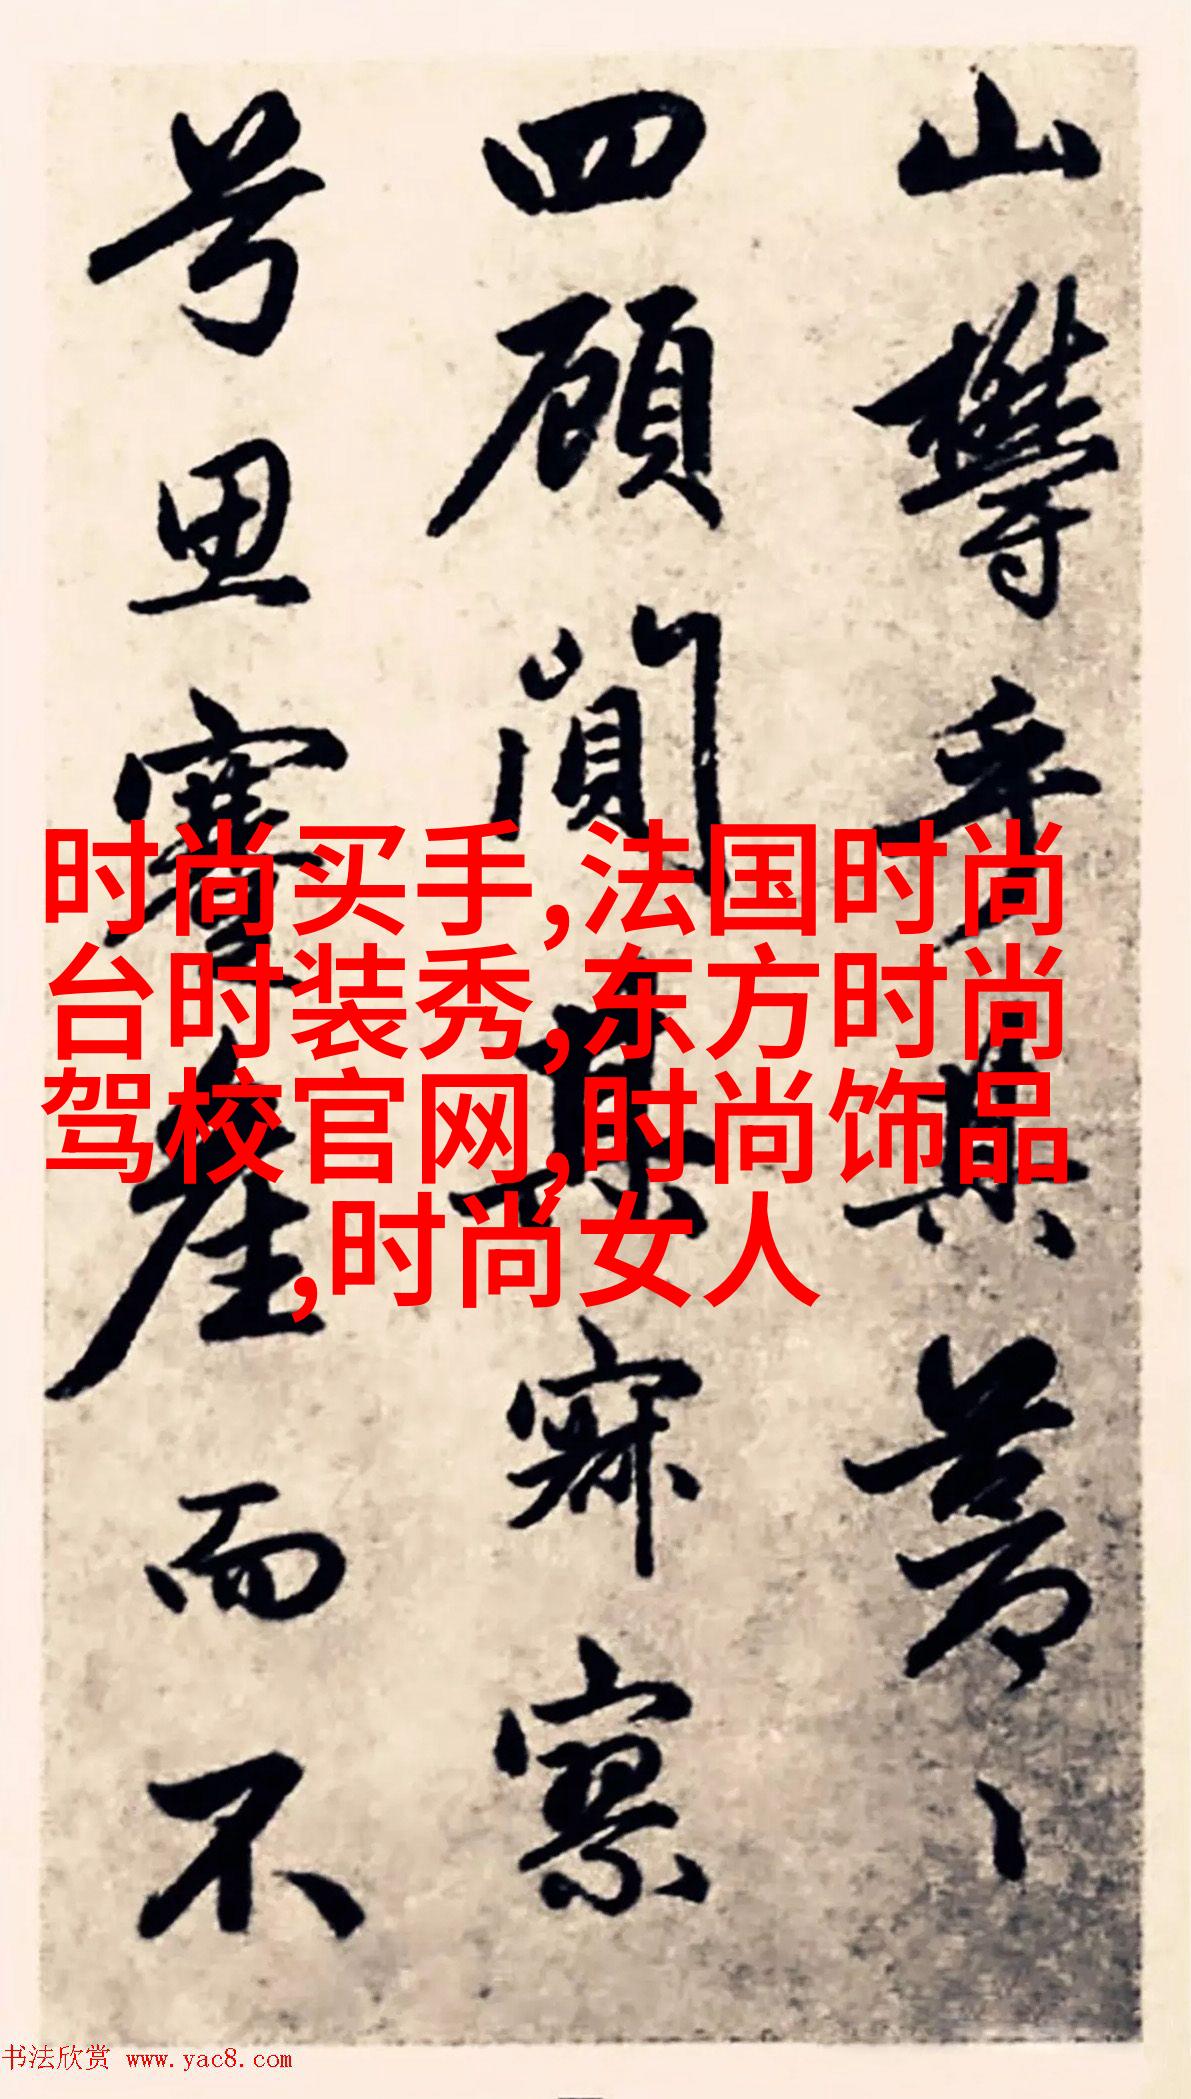 山鬱乎其蒼〻
四顧闃其寂寥
兮思蹇產而不
时尚买手,法国时尚
台时装秀,东方时尚
驾校官网,时尚饰品
,时尚女人
书法欣赏 www.yac8.com